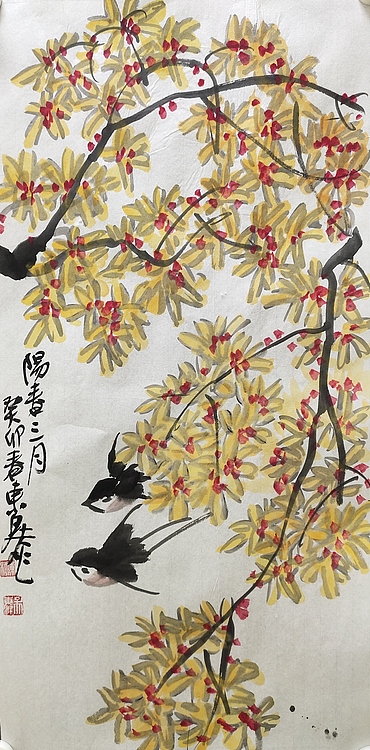 陽春三月
癸卯春東吳作